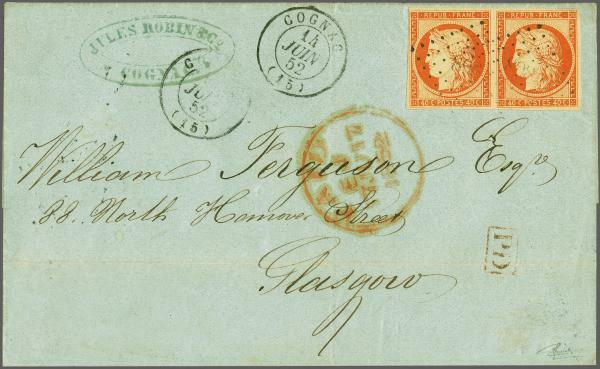 JULES ROBIN & Cº
COGNAC
COGNAC
14
JUIN
52
(15)
C
JU
52
(15)
REPUB. FRANC.
40 C. POSTES 40 C.
REPUB. FRANC.
40 C. POSTES 40 C.
PAID
William Ferguson Esqre
38 North Hanover Street
Glasgow
PD